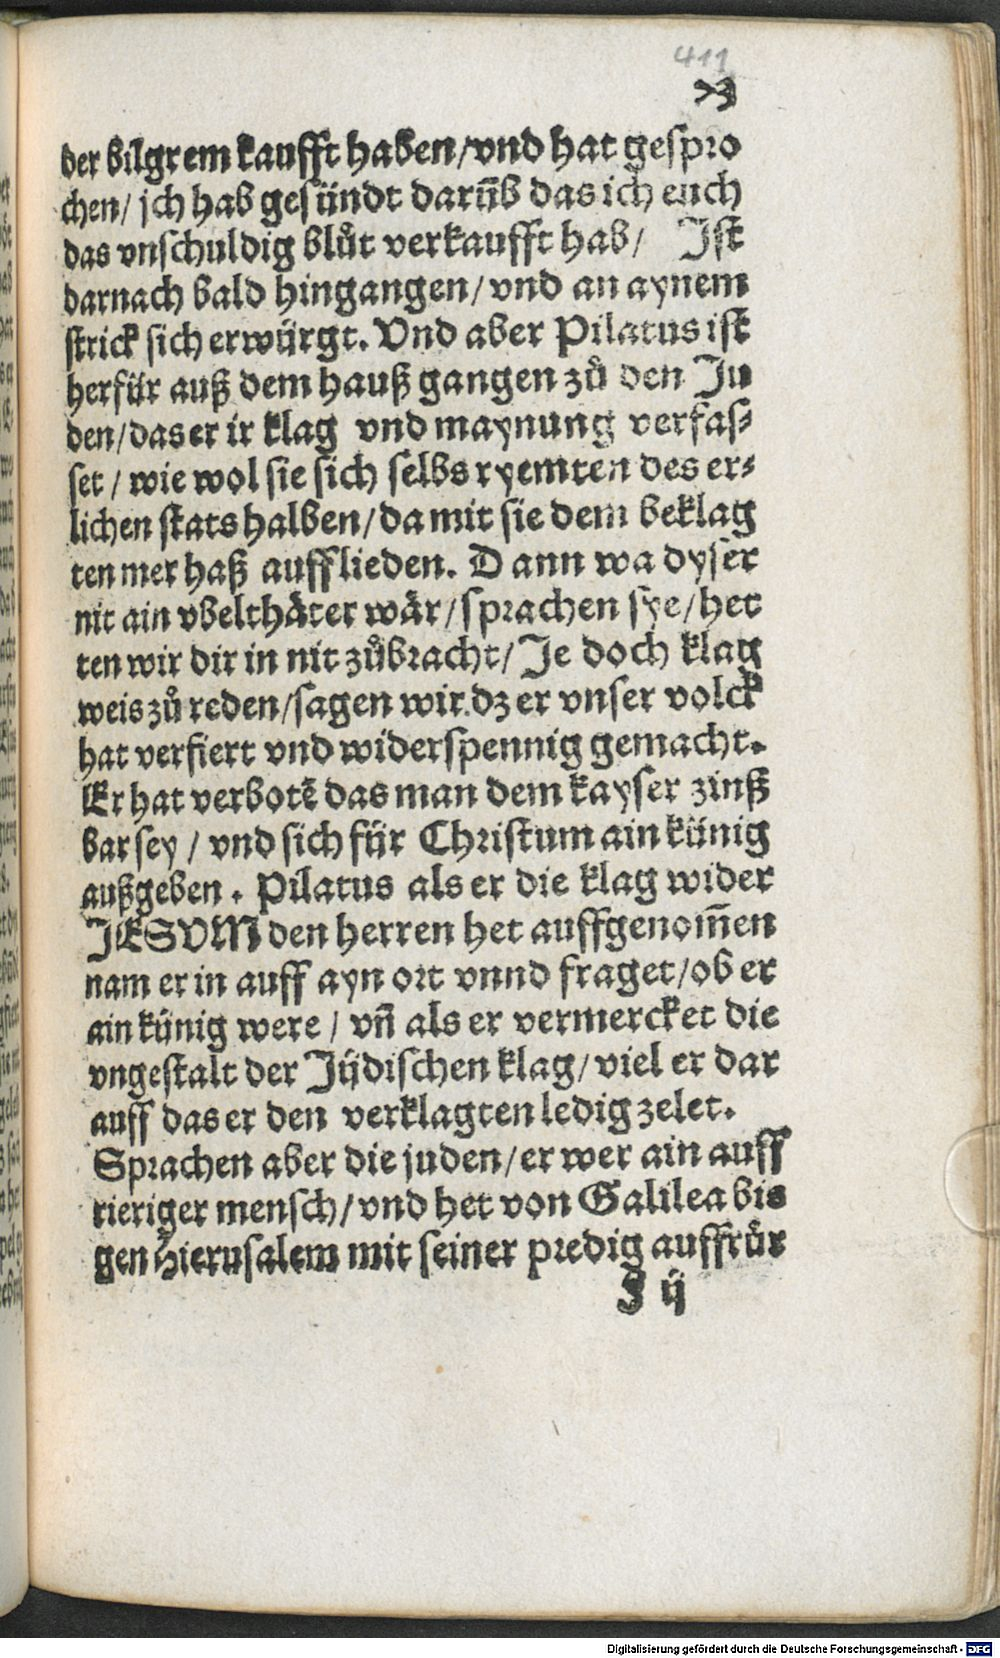 411
der bilgrem kaufft haben/vnd hat gespro
chen/ jch hab gesündt darūb das ich euch
das vnschuldig blůt verkaufft hab/ Ist
darnach bald hingangen/vnd an aynem
strick sich erwürgt. Vnd aber Pilatus ist
herfür auß dem hauß gangen zů den Ju
den/das er ir klag vnd maynung verfas⸗
set / wie wol sie sich selbs ryemten des er⸗
lichen stats halben/da mit sie dem beklag
ten mer haß aufflieden. Dann wa dyser
nit ain vbelthäter wär/sprachen sye/het
ten wir dir in nit zůbracht/ Je doch klag
weis zů reden/sagen wir dz er vnser volck
hat verfiert vnd widerspennig gemacht.
Er hat verbotē das man dem kayser zinß
bar sey / vnd sich für Christum ain künig
außgeben. Pilatus als er die klag wider
JESVM den herren het auffgenom̄en
nam er in auff ayn ort vnnd fraget/ob er
ain künig were / vn̄ als er vermercket die
vngestalt der Jüdischen klag/viel er dar
auff das er den verklagten ledig zelet.
Sprachen aber die juden/er wer ain auff
rieriger mensch/vnd het von Galilea bis
gen Hierusalem mit seiner predig auffrůr
ij
Digitalisierung gefördert durch die Deutsche Forschungsgemeinschaft - DFG